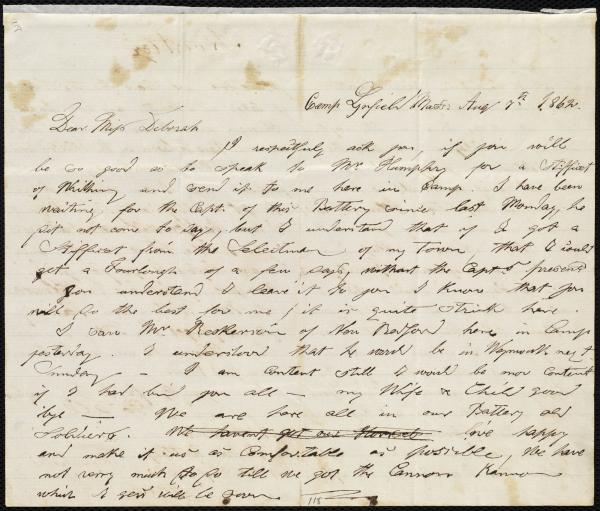 Camp Lynfield Mass Aug 7th 1862.
Dear Miss Deborah
I respectfuly ask you, if you will
be so good as to speak to Mr Humphry for a Stifficet
of Writting and send it to me here in Camp. I have been
waiting for the Capt. of this Battery since last Monday, he
did not come to day, but I understand that if I got a
Stifficet from the Selectman of my town, that I could
get a Fourlough of a few days, without the Capt.s present
you understand I leave it to you I know that you
will do the best for me, it is quite strick here.
I saw Mr. Rickerson of New Bedford here in Camp
yesterday. I understood that he would be in Weymouth next
Sunday — I am content still I would be mor content
if I had bind you all — my Wife & Child good
bye — We are here all in our Battery old
Soldiers. We havent got our Horses love happy
and make it us as Comfortable as possible, We have
not verry much to do till we got the Cannon Kannon
which I gess will be soon
115